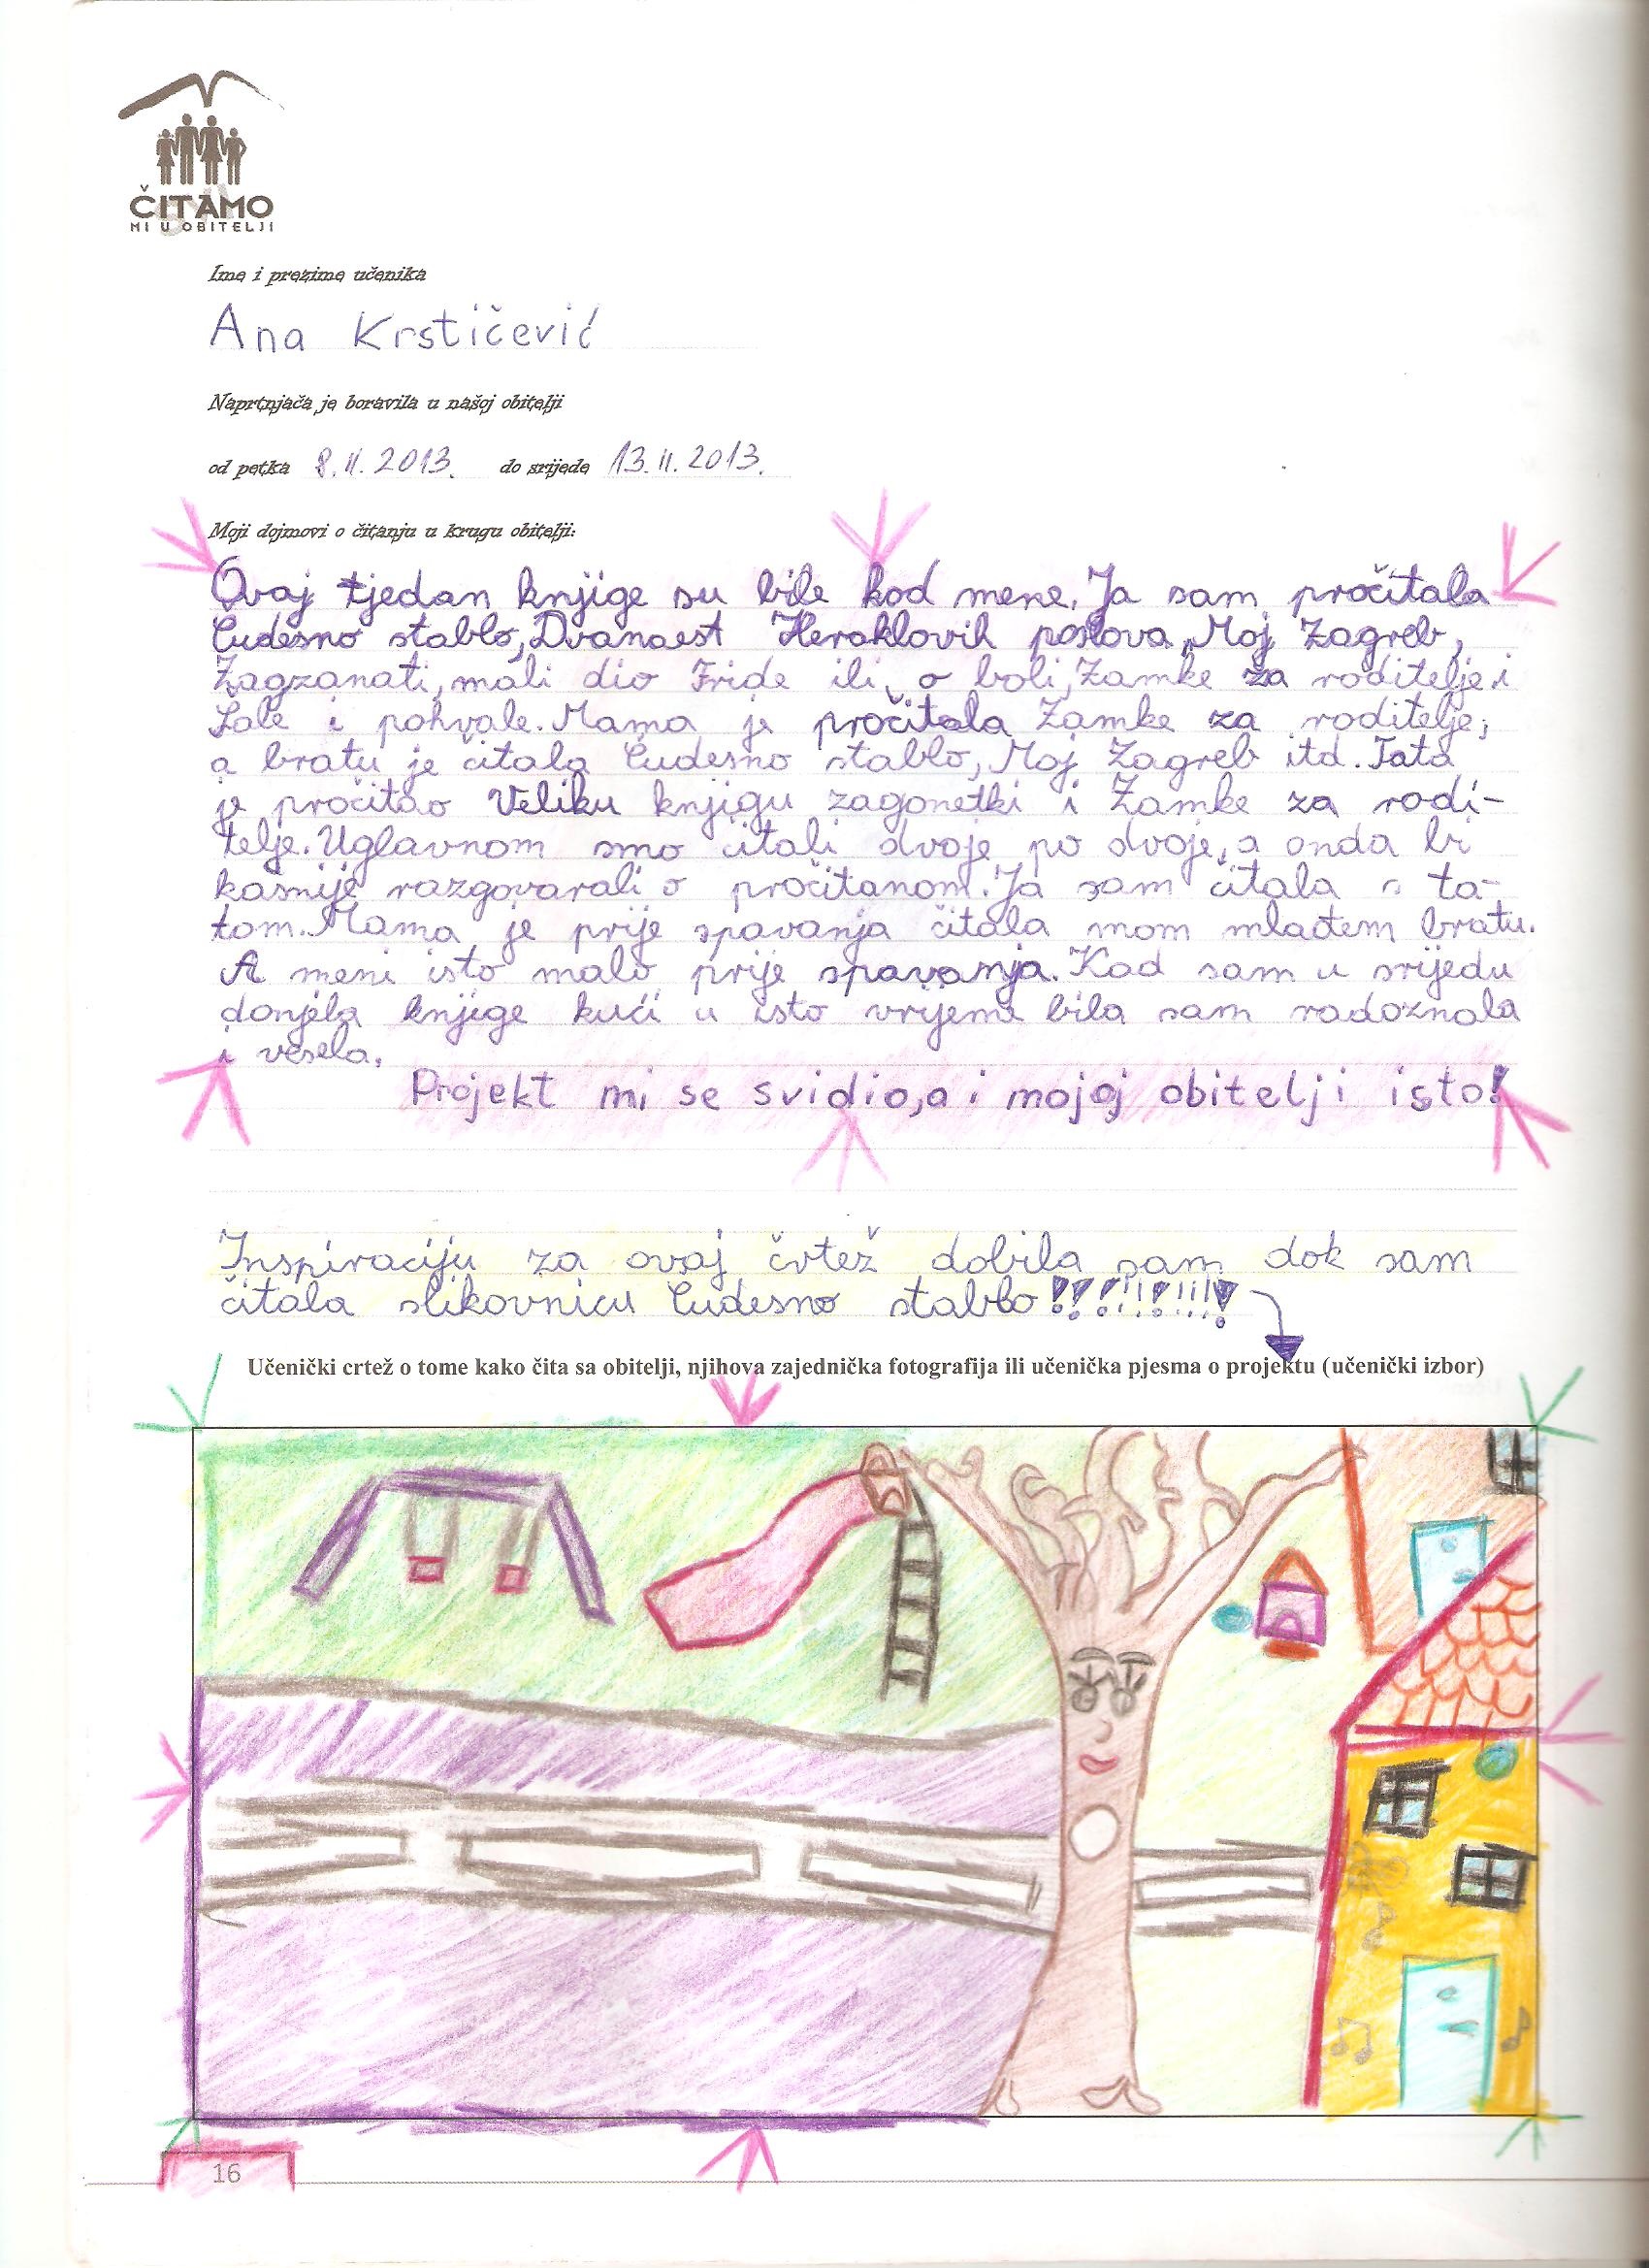 ČITAMO
MI U OBITELJI
Ime i prezime učenika
Ana Krstičević
Naprtnjača je boravila u našoj obitelji
od petka 8.11.2013. do srijede 13.11.2013.
Moji dojmovi o čitanju u krugu obitelji:
Ovaj tjedan knjige su bile kod mene. Ja sam pročitala
Čudesno stablo, Dvanaest Heraklovih poslova, Moj Zagreb,
Zagzanati, mali dio Fride ili o boli, Zamke za roditelje i
Šale i pohvale. Mama je pročitala Zamke za roditelje,
a bratu je čitala Čudesno stablo, Moj Zagreb itd. Tata
je pročitao Veliku knjigu zagonetki i Zamke za rodi-
telje. Uglavnom smo čitali dvoje po dvoje, a onda bi
kasnije razgovarali o pročitanom. Ja sam čitala s ta-
tom. Mama je prije spavanja čitala mom mlađem bratu.
A meni isto malo prije spavanja. Kad sam u srijedu
donjela knjige kući u isto vrijeme bila sam radoznala
i vesela.
Projekt mi se svidio, a i mojoj obitelji isto!
Inspiraciju za ovaj črtež dobila sam dok sam
čitala slikovnicu Čudesno stablo!!!!!!!!!!
Učenički crtež o tome kako čita sa obitelji, njihova zajednička fotografija ili učenička pjesma o projektu (učenički izbor)
16